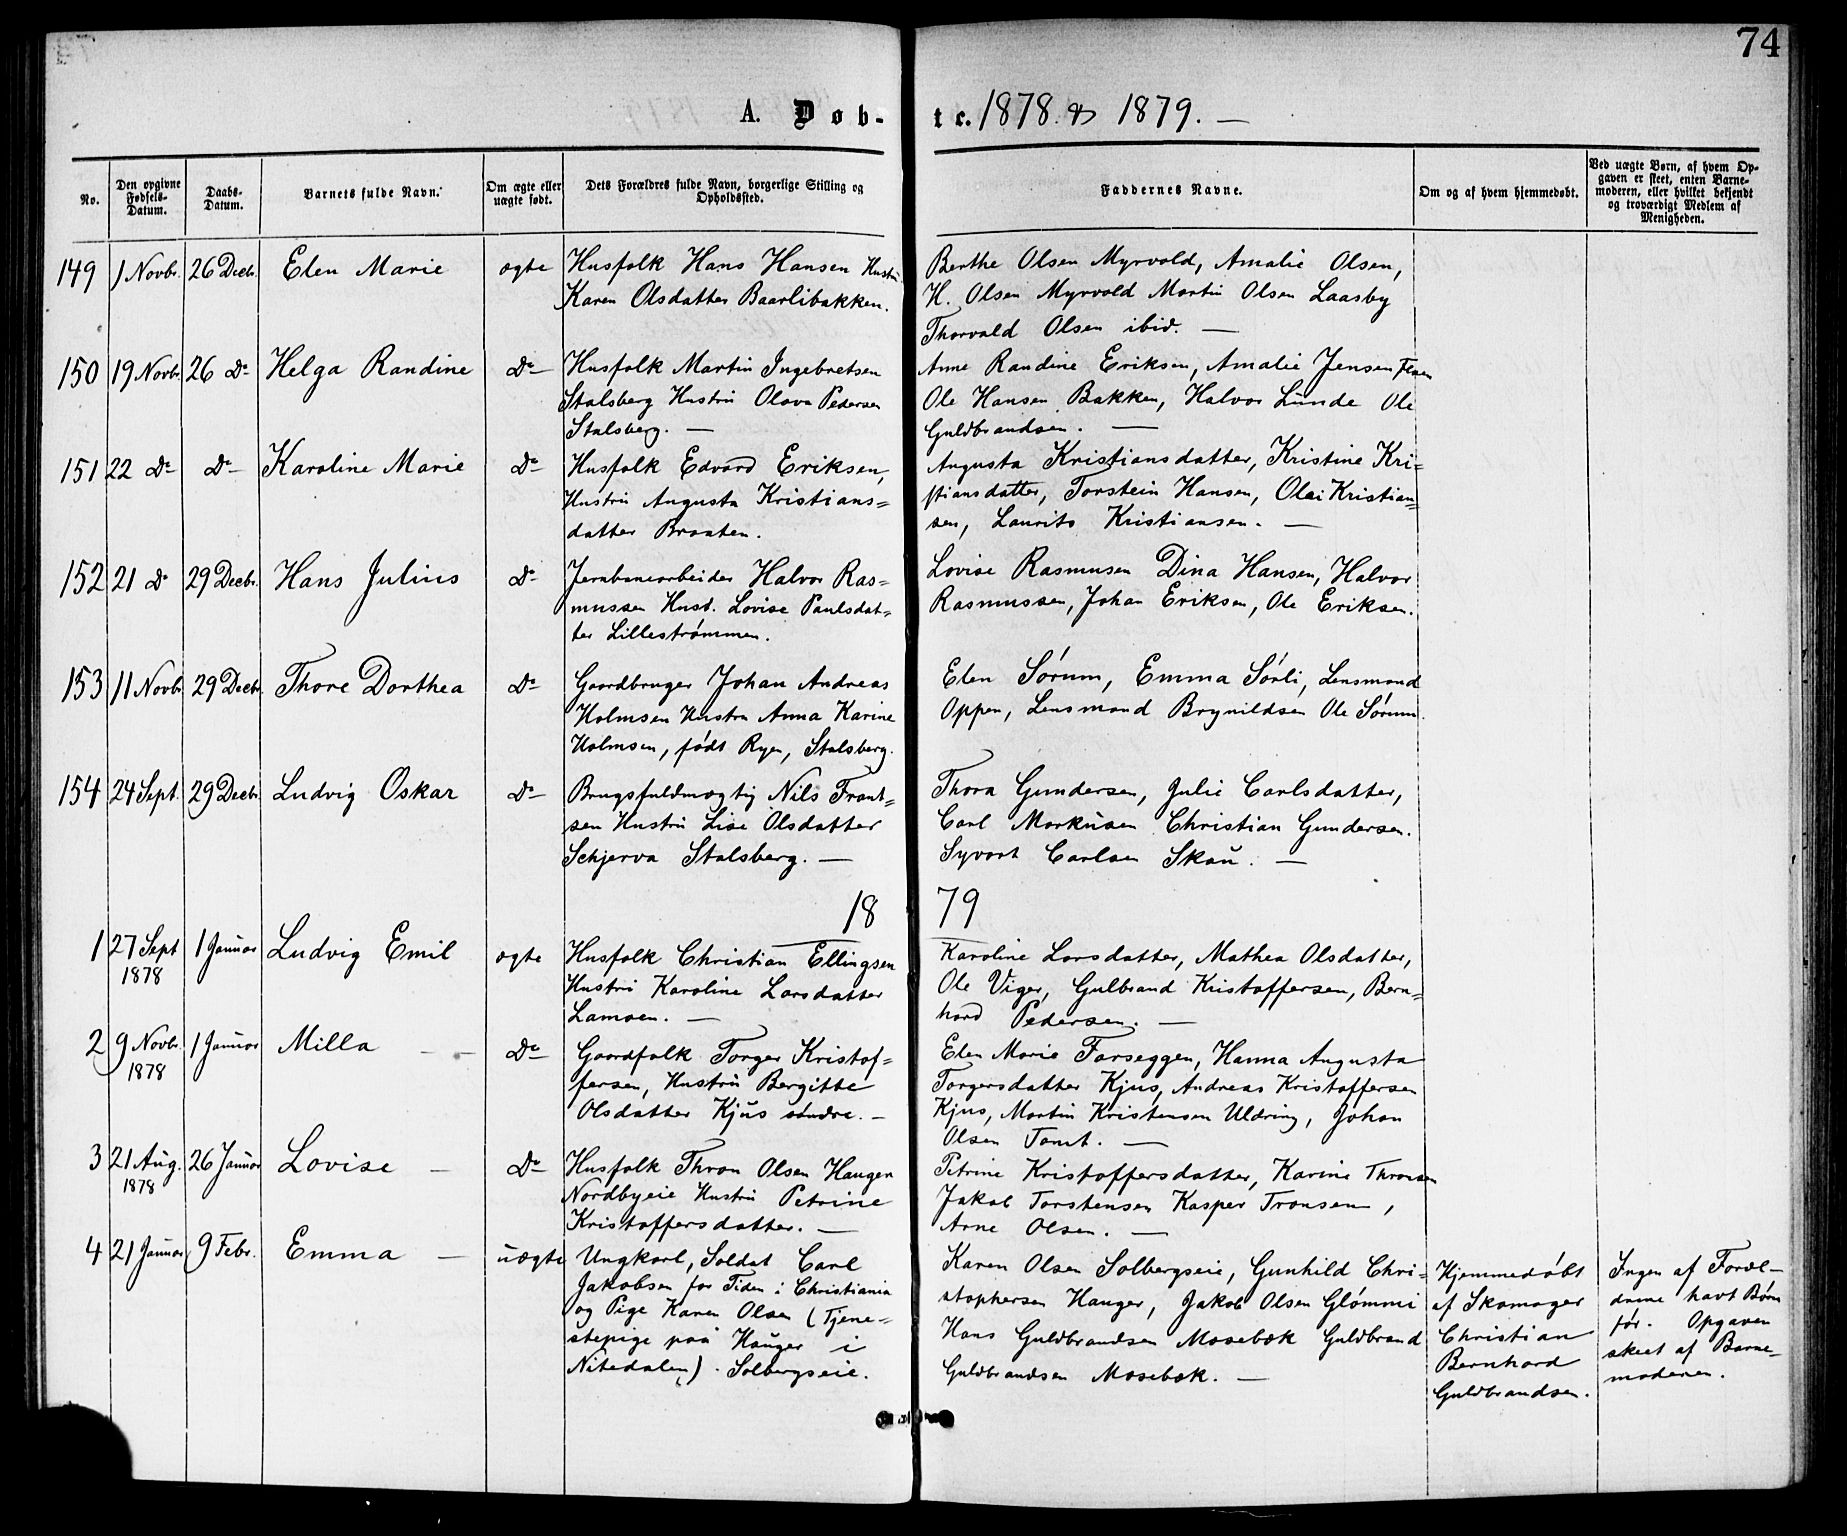 74
A. Døb- te. 1878. & 1879. —
No.
Den opgivne Fødsels-Datum.
Daabs-Datum.
Barnets fulde Navn.
Om ægte eller uægte født.
Dets Forældres fulde Navn, borgerlige Stilling og Opholdssted.
Faddernes Navne.
Om og af hvem hjemmedøbt.
Ved uægte Børn, af hvem Opgaven er skeet, enten Barnemoderen, eller hvilket bekjendt og troværdigt Medlem af Menigheden.
149 1 Novbr. 26 Decb. Elen Marie ægte Husfolk Hans Hansen Hustru
Karen Olsdatter Baarlibakken.
Berthe Olsen Myrvold, Amalie Olsen,
H. Olsen Myrvold Martin Olsen Laasby
Thorvald Olsen ibid. —
150 19 Novb. 26 Do Helga Randine Do Husfolk Martin Ingebretsen
Stalsberg Hustru Olava Pedersen
Stalsberg. —
Anne Randine Eriksen, Amalie Jensen
Ole Hansen Bakken, Halvor Lunde Ole
Guldbrandsen. —
151 22 Do Do Karoline Marie Do Husfolk Edvard Eriksen,
Hustru Augusta Kristians=
datter Braaten.
Augusta Kristiansdatter, Kristine Kri=
stiansdatter, Torstein Hansen, Olai Kristian=
sen, Laurits Kristiansen. —
152 21 Do 29 Decbr. Hans Julius Do Jernbanearbeider Halvor Ras=
mussen Hust. Lovise Paulsdat=
ter Lillestrømmen.
Lovise Rasmusen Dina Hansen, Halvor
Rasmussen, Johan Eriksen, Ole Eriksen.
153 11 Novb. 29 Decb. Thore Dorthea Do Gaardbruger Johan Andreas
Holmsen Hustru Anna Karine
Holmsen, født Ryen, Stalsberg.
Elen Sørum, Emma Sørli, Lensmand
Oppen, Lensmand Brynildsen Ole Sørum.
154 24 Sept. 29 Decb. Ludvig Oskar Do Brugsfuldmægtig Nils Frant=
sen Hustru Lise Olsdatter
Schjerva Stalsberg. —
Thora Gundersen, Julie Carlsdatter,
Carl Markusen Christian Gundersen.
Syvart Carlsen Skau. —
18 79
1 27 Sept 1 Januar Ludvig Emil ægte Husfolk Christian Ellingsen
1878
Hustru Karoline Larsdatter
Lamoen. —
Karoline Larsdatter, Mathea Olsdatter,
Ole Viger, Gulbrand Kristoffersen, Bern=
hard Pedersen. —
2 9 Novbr. 1 Januar Milla — — Do Gaardfolk Torger Kristof=
1878
fersen, Hustru Bergitte
Olsdatter Kjus søndre. —
Elen Marie Farseggen, Hanna Augusta
Torgersdatter Kjus, Andreas Kristoffersen
Kjus, Martin Kristensen Uldring, Johan
Olsen Tomt. —
3 21 Aug. 26 Januar Lovise — Do Husfolk Thron Olsen Haugen
1878
Nordbyeie Hustru Petrine
Kristoffersdatter. —
Petrine Kristoffersdatter, Karine Thronsen
Jakob Torstensen Kasper Tronsen,
Arne Olsen. —
4 21 Januar 9 Febr. Emma — uægte Ungkarl, Soldat Carl
Jakobsen for Tiden i Christiania
og Pige Karen Olsen (Tjene=
stepige paa Hauger i
Nitedalen). Solbergseie.
Karen Olsen Solbergseie, Gunhild Chri=
stophersen Hauger, Jakob Olsen Glømmi
Hans Guldbrandsen Mosebæk Guldbrand
Guldbrandsen Mosebæk. —
Hjemmedøbt
af Skomager
Christian
Bernhard
Guldbrandsen.
Ingen af Foræl-
drene havt Børn
før. Opgaven
skeet af Barne-
moderen.